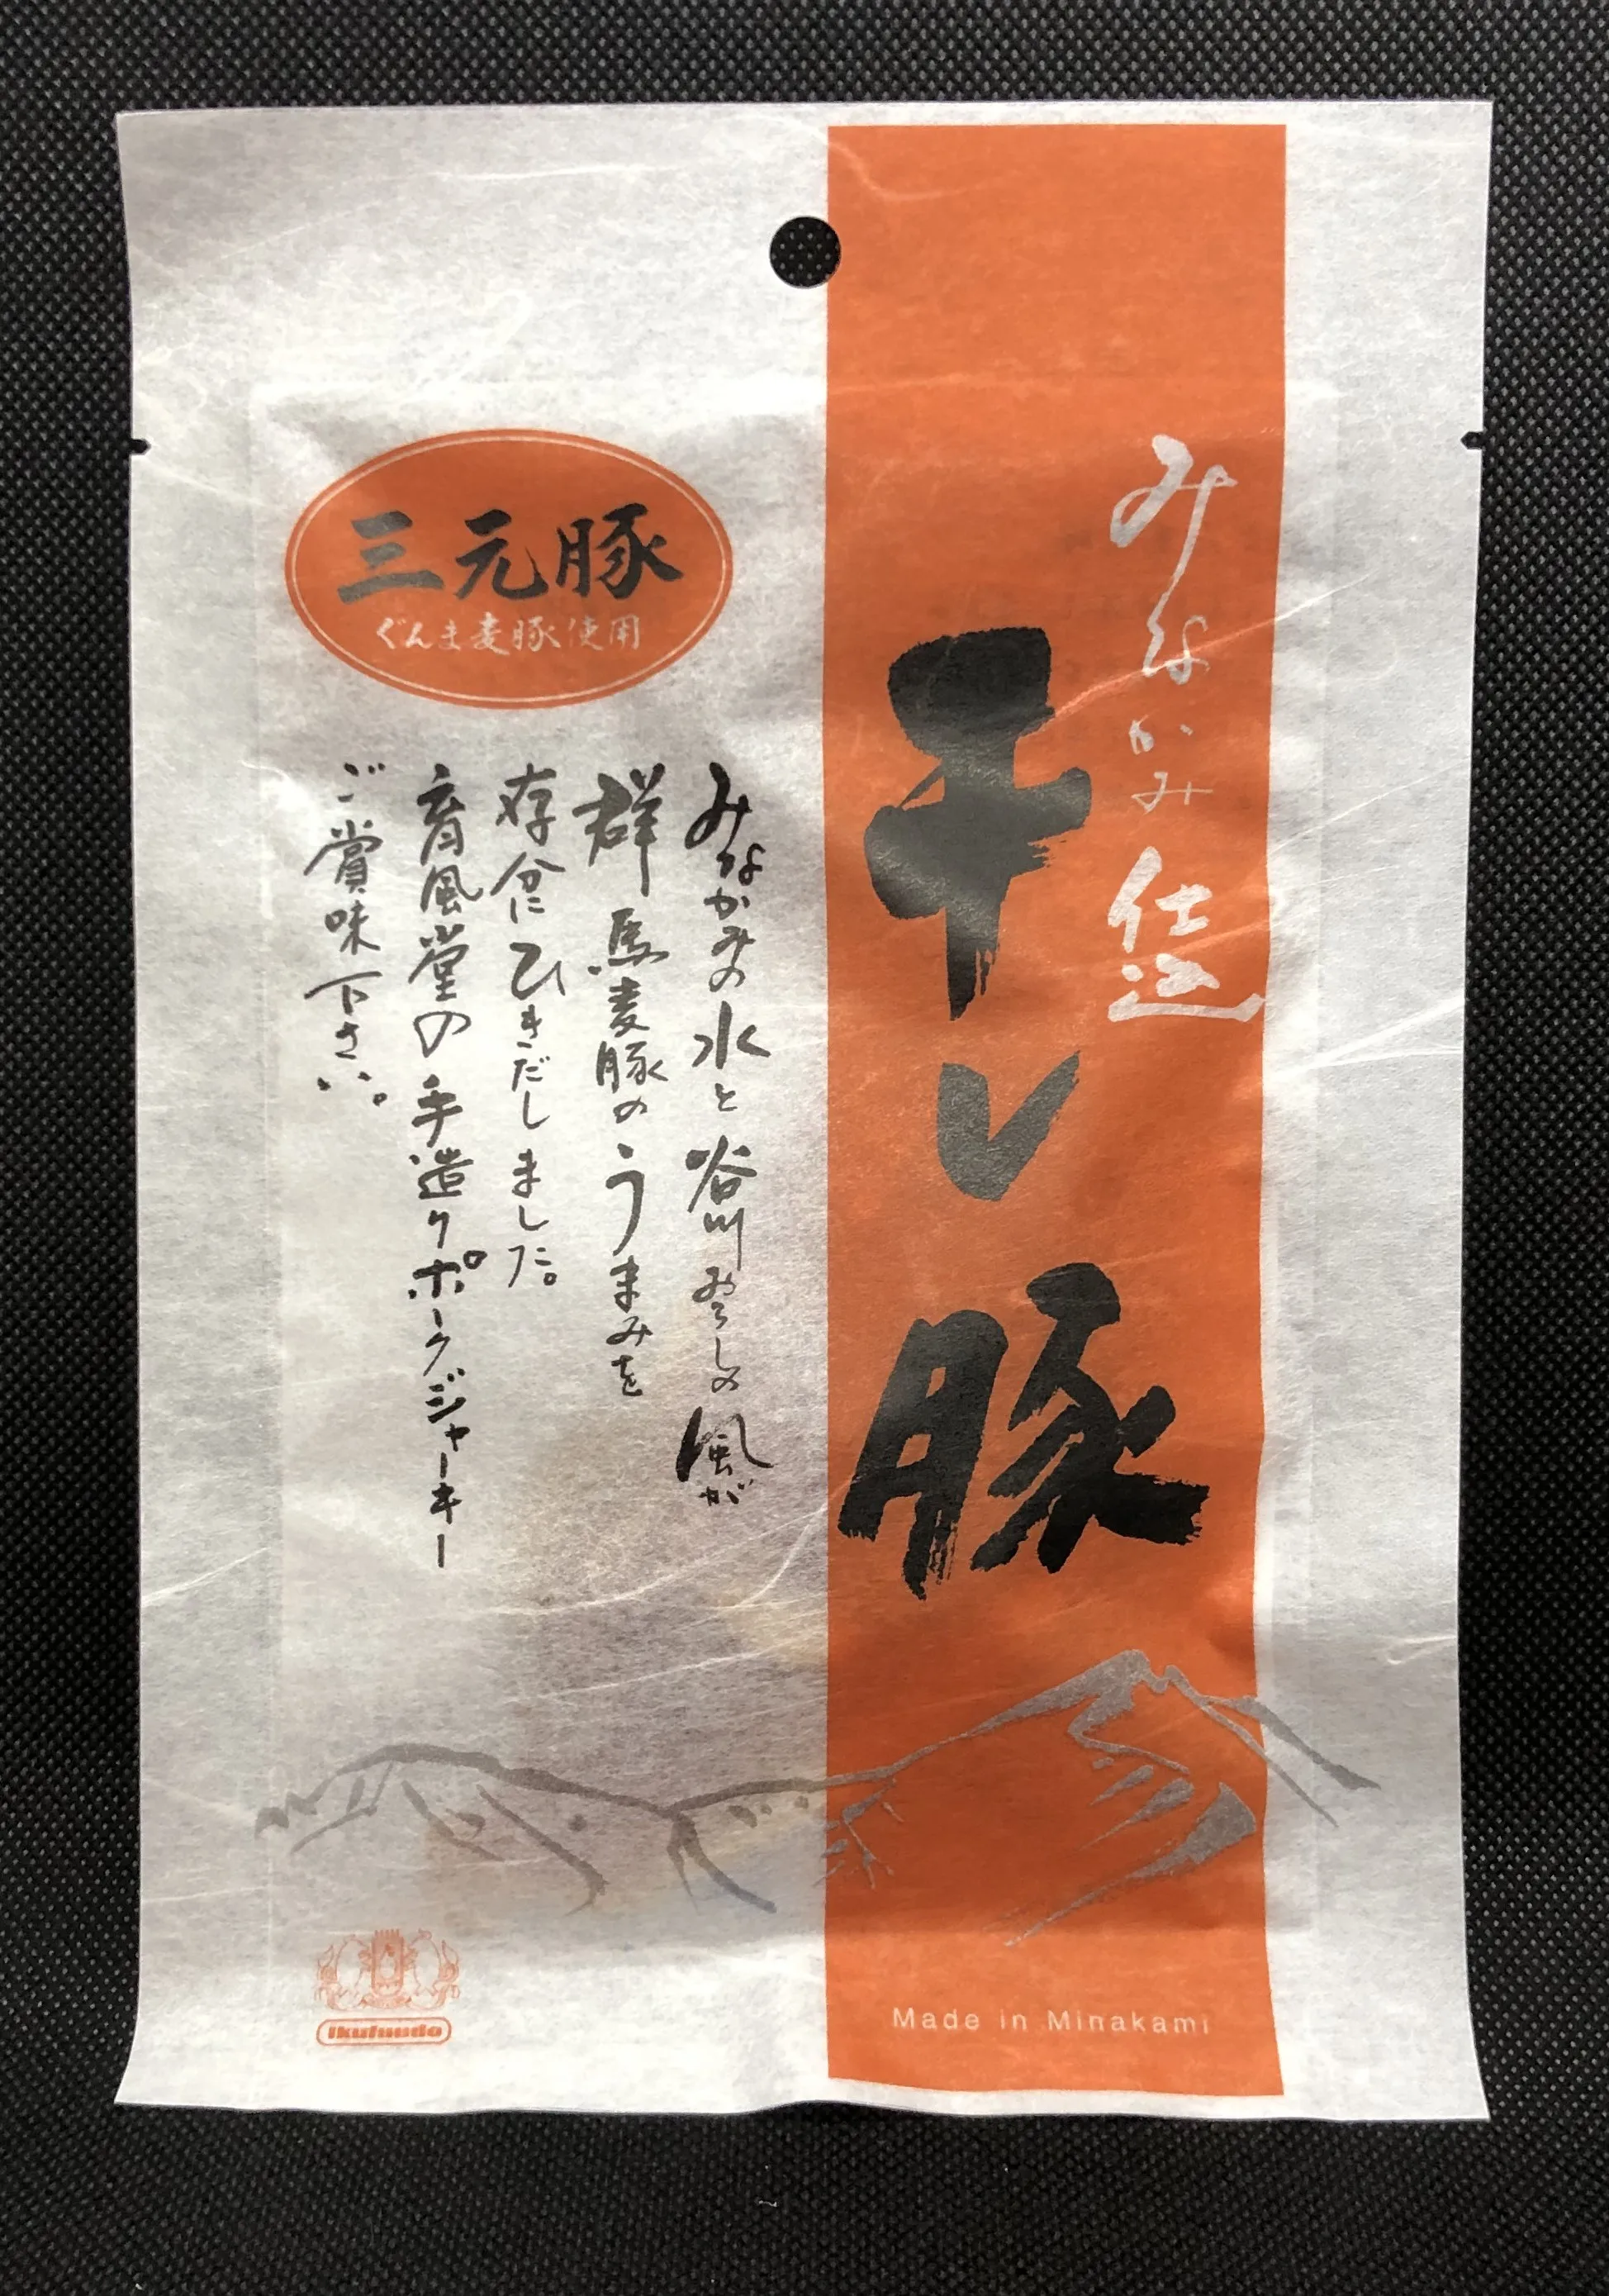 みなかみ仕込
干し豚
三元豚
ぐんま麦豚使用
みなかみの水と谷川おろしの風が
群馬麦豚のうまみを
存分にひきだしました。
育風堂の手造りポークジャーキー
ご賞味下さい。
Ikufuudo
Made in Minakami